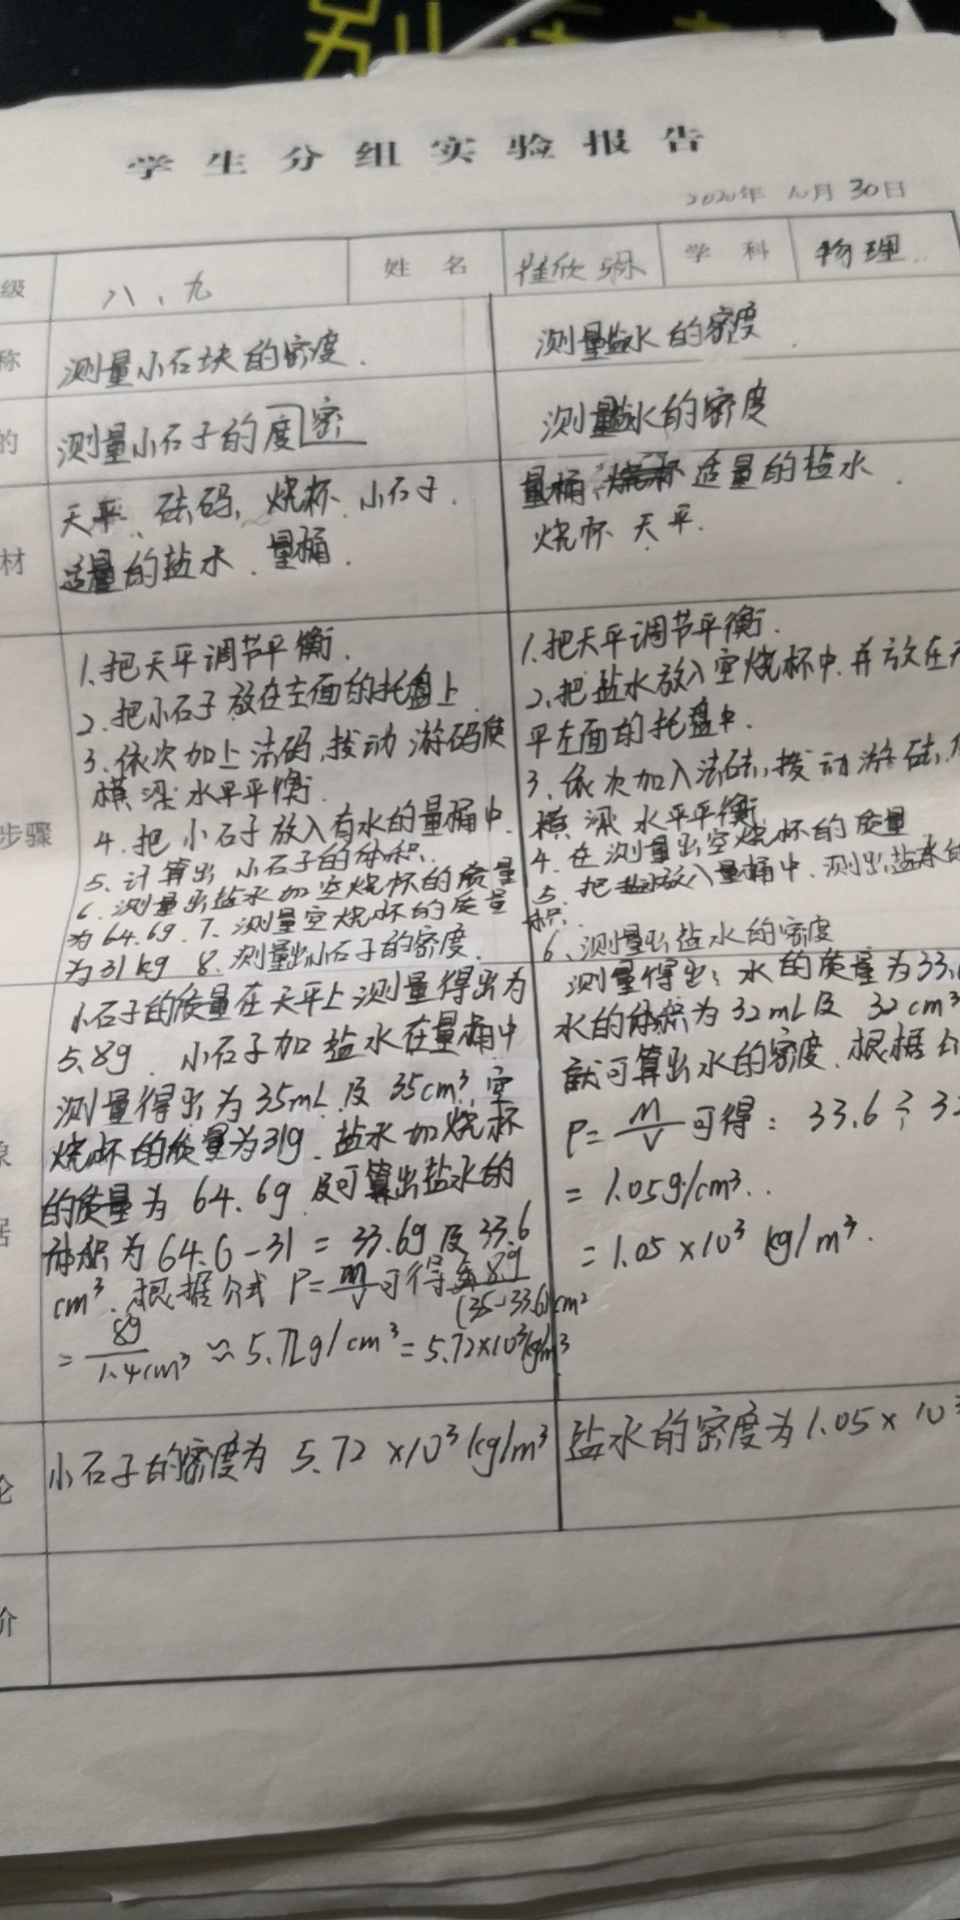 学生分组实验报告
2020年 10月 30日
级 八、九 姓名 崔欣 学科 物理
称 测量小石块的密度. 测量盐水的密度
的 测量小石子的度密 测量盐水的密度
材 天平、砝码、烧杯、小石子.
适量的盐水、量桶.
量桶、烧杯 适量的盐水.
烧杯 天平.
步骤
1.把天平调节平衡.
2.把小石子放在左面的托盘上
3.依次加上法码,拨动游码使
横梁水平平衡.
4.把小石子放入有水的量桶中.
5.计算出小石子的体积.
6.测量出盐水加空烧杯的质量
为64.6g.7.测量空烧杯的质量
为31kg 8.测量出小石子的密度.
1.把天平调节平衡.
2.把盐水放入空烧杯中.并放在天
平左面的托盘中.
3.依次加入法砝,拨动游砝,使
横梁水平平衡
4.在测量出空烧杯的质量
5.把盐水放入量桶中.测出盐水的
积.
6.测量出盐水的密度
小石子的质量在天平上测量得出为
5.8g.小石子加盐水在量桶中
测量得出为35mL及35cm³,空
烧杯的质量为31g.盐水加烧杯
的质量为64.6g及可算出盐水的
体积为64.6-31=33.6g及33.6
cm³.根据公式 ρ=m/V可得 8g/(35-33.6)cm³
=8g/1.4cm³≈5.72g/cm³=5.72×10³kg/m³
测量得出:水的质量为33.6
水的体积为32mL及32cm³
就可算出水的密度.根据公
ρ=M/V可得:33.6÷32
=1.05g/cm³..
=1.05×10³kg/m³.
论 小石子的密度为 5.72×10³kg/m³ 盐水的密度为1.05×10³
价